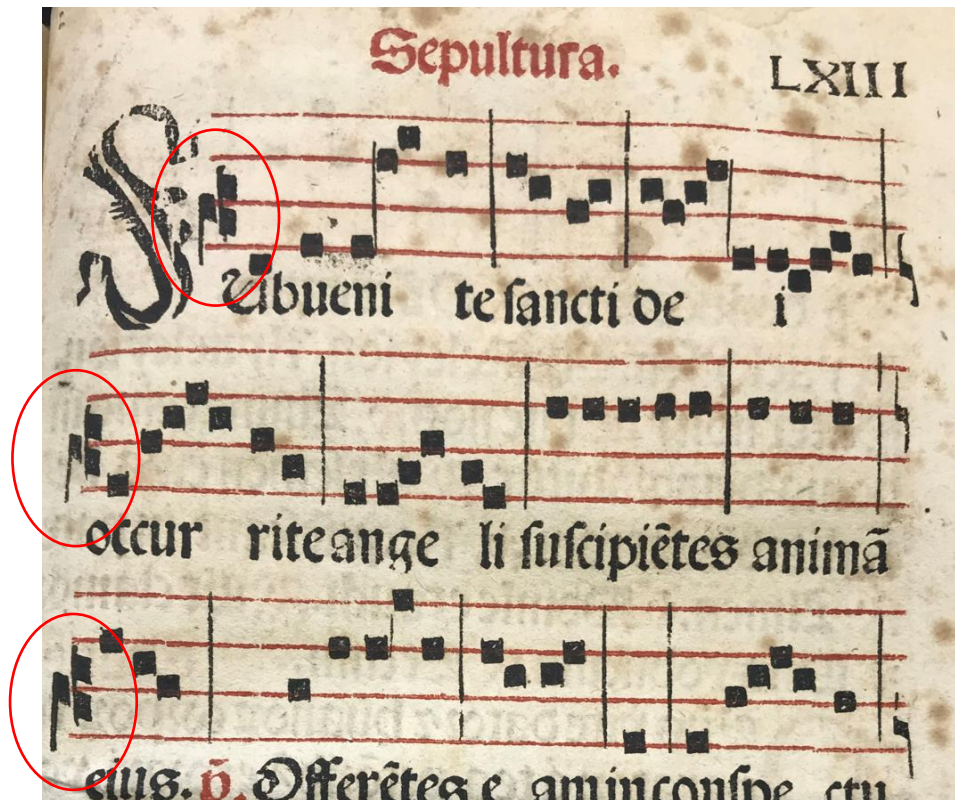 Sepultura.
LXIII
SUbueni te sancti de i
occur rite ange li suscipiẽtes animã
eius. ṽ. Offerẽtes e am in conspe ctu